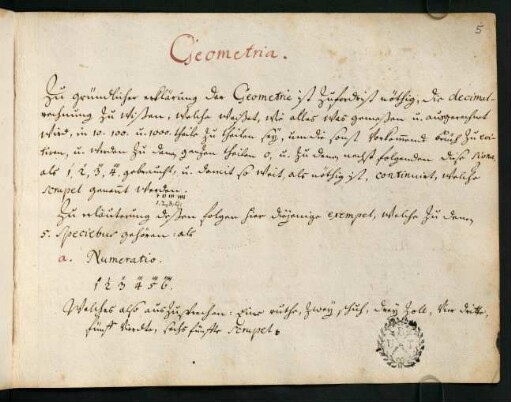 5
Geometria.
Zu gründlicher erklärung der Geometrie ist zuforderst nöthig, die decimal-
rechnung zu wißen, welche weiset, wie alles was gemeßen u. ausgerechnet
wird, in 10. 100. u. 1000 theile zu theilen sey, um die sonst vorkommend brüch zu
u. werden zu dem ganzen theilen 0, u. zu denen nechst folgenden diese
als 1, 2, 3, 4 gebraucht, u. damit so weit, als nöthig ist, continuirt, welche
scrupel genent werden.
Zu erläuterung deßen folgen hier diejenige exempel, welche zu denen
5. Speciebus gehören: als
a. Numeratio.
1 2 3 4 5 6
Welches also auszusprechen: Eine ruthe, zwey schuh, drey Zoll, vier dritte,
fünff vierdte, sechs fünffte scrupel.